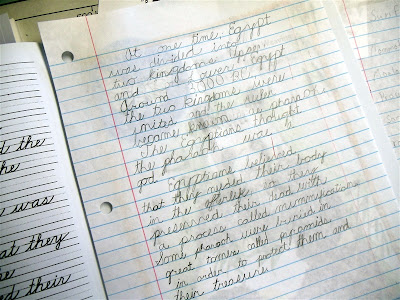 At one time, Egypt
was divided into
two kingdoms upper
and lower Egypt
Around 3,000 BC,
the two kingdoms were
united and the ruler
became known as pharaohs
The Egyptians thought
the pharaoh was
god. Egyptians believed
that they needed their body
in the afterlife so they
preserved their dead with
a process called mummification
Some pharaoh were buried in
great tombs called pyramids
in order to protect them and
their treasure.
d the
n
was
at they
the
ed their